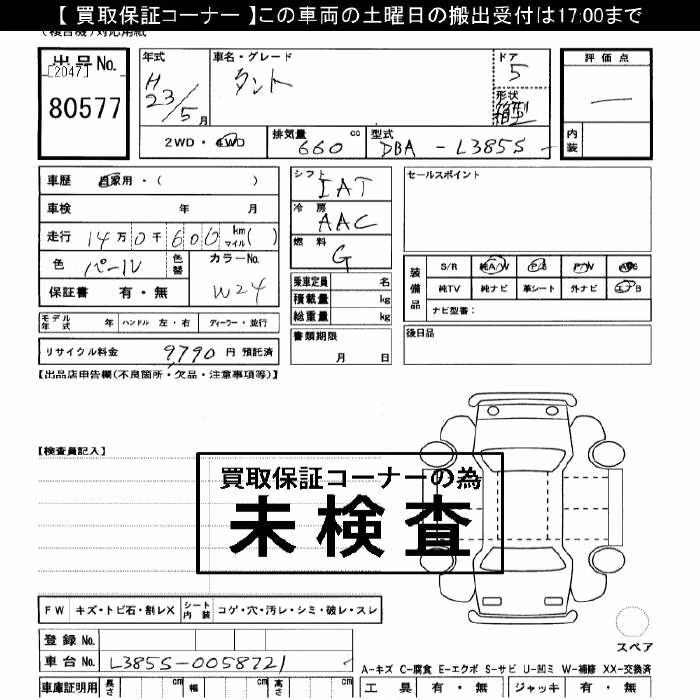 【 買取保証コーナー 】この車両の土曜日の搬出受付は17:00まで
出品No.
[2047]
80577
年式
H 23/5 月
車名・グレード
タント
ドア
5
形状
箱型
評価点
―
内装
2WD・4WD
排気量 660 cc
型式 DBA - L385S -
車歴 自家用・( )
車検 年 月
走行 14万0千600 km マイル( )
色 パール 色替
カラーNo. W24
保証書 有・無
シフト IAT
冷房 AAC
燃料 G
乗車定員 名
積載量 kg
総重量 kg
書類期限
月 日
セールスポイント
装備品
S/R 純A/W P/S P/W ABS
純TV 純ナビ 革シート 外ナビ エアB
ナビ型番:
後日品
モデル年式 年 ハンドル 左・右 ディーラー・並行
リサイクル料金 9,790 円 預託済
【出品店申告欄(不良箇所・欠品・注意事項等)】
【検査員記入】
買取保証コーナーの為
未検査
FW キズ・トビ石・割レX シート内装 コゲ・穴・汚レ・シミ・破レ・スレ
スペア
登録No.
車台No. L385S-0058721
A-キズ C-腐食 E-エクボ S-サビ U-凹ミ W-補修 XX-交換済
車庫証明用 長さ cm 幅 cm 高さ cm
工具 有・無 ジャッキ 有・無